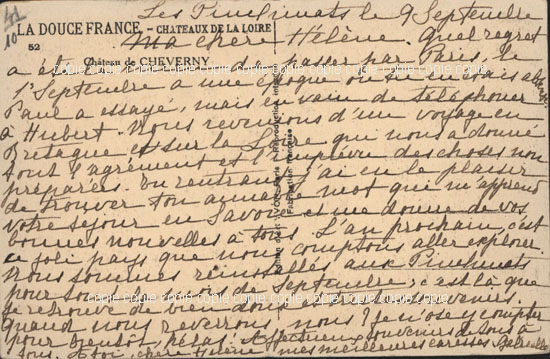 Les Pinchinats le 9 Septembre
41
10
LA DOUCE FRANCE. - CHATEAUX DE LA LOIRE
52
Château de CHEVERNY
Ma chère Hélène. Quel regret
a été de passer par Paris, le
1er Septembre à une époque où
Paul a essayé, mais en vain de téléphoner
à Hubert. Nous revenions d'un voyage en
Bretagne et sur la Loire qui nous a donné
tout l'agrément et l'imprévu des choses non
préparées. En rentrant j'ai eu le plaisir
de trouver ton mot qui m'apprend
votre séjour en Savoie et me donne de vos
bonnes nouvelles à tous. L'an prochain, c'est
ce joli pays que nous comptons aller explorer.
Nous sommes réinstallés aux Pinchinats
pour tout le mois de Septembre, c'est là que
je retrouve de bien doux souvenirs.
Quand nous reverrons nous ? Je n'ose y compter
pour bientôt, hélas. Affectueux souvenirs de tous à
tous. A toi, chère Hélène mes meilleures caresses.
Fabrication française
copie copie copie copie copie copie copie copie copie copie copie copie
copie copie copie copie copie copie copie copie copie copie copie copie
copie copie copie copie copie copie copie copie copie copie copie copie